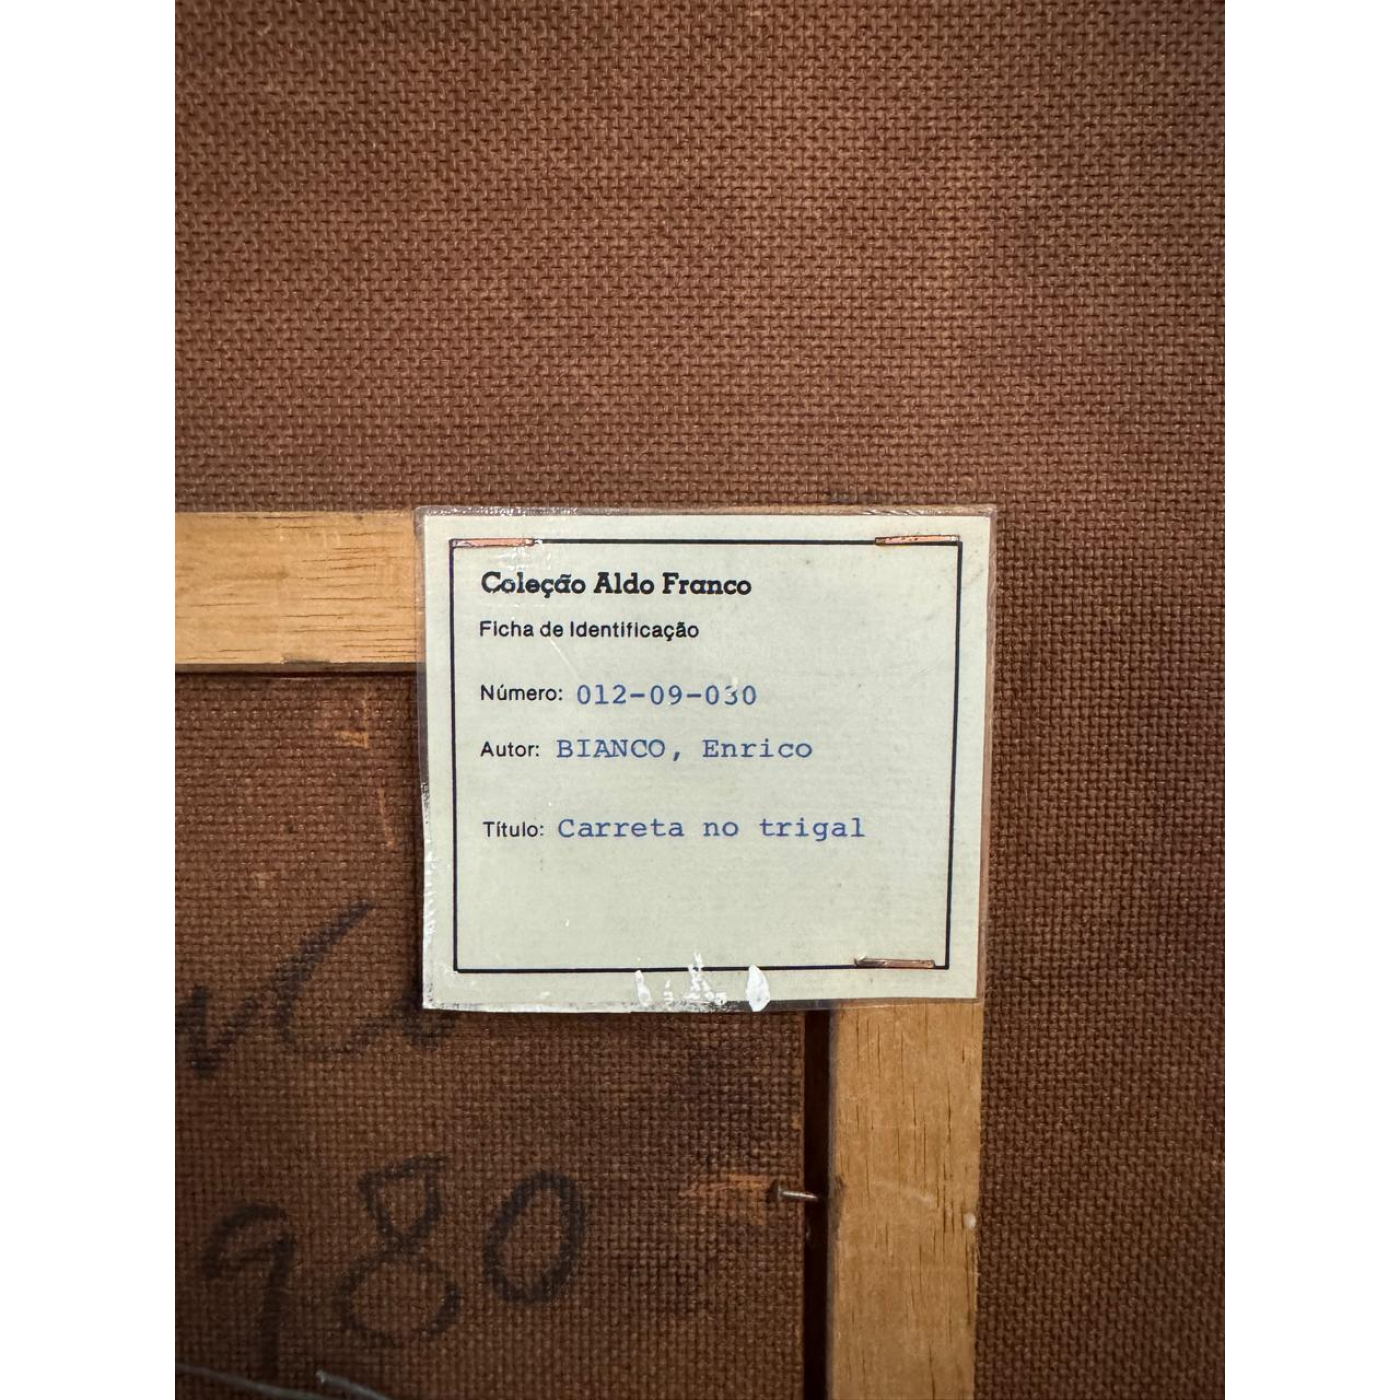 Coleção Aldo Franco
Ficha de Identificação
Número: 012-09-030
Autor: BIANCO, Enrico
Título: Carreta no trigal
980